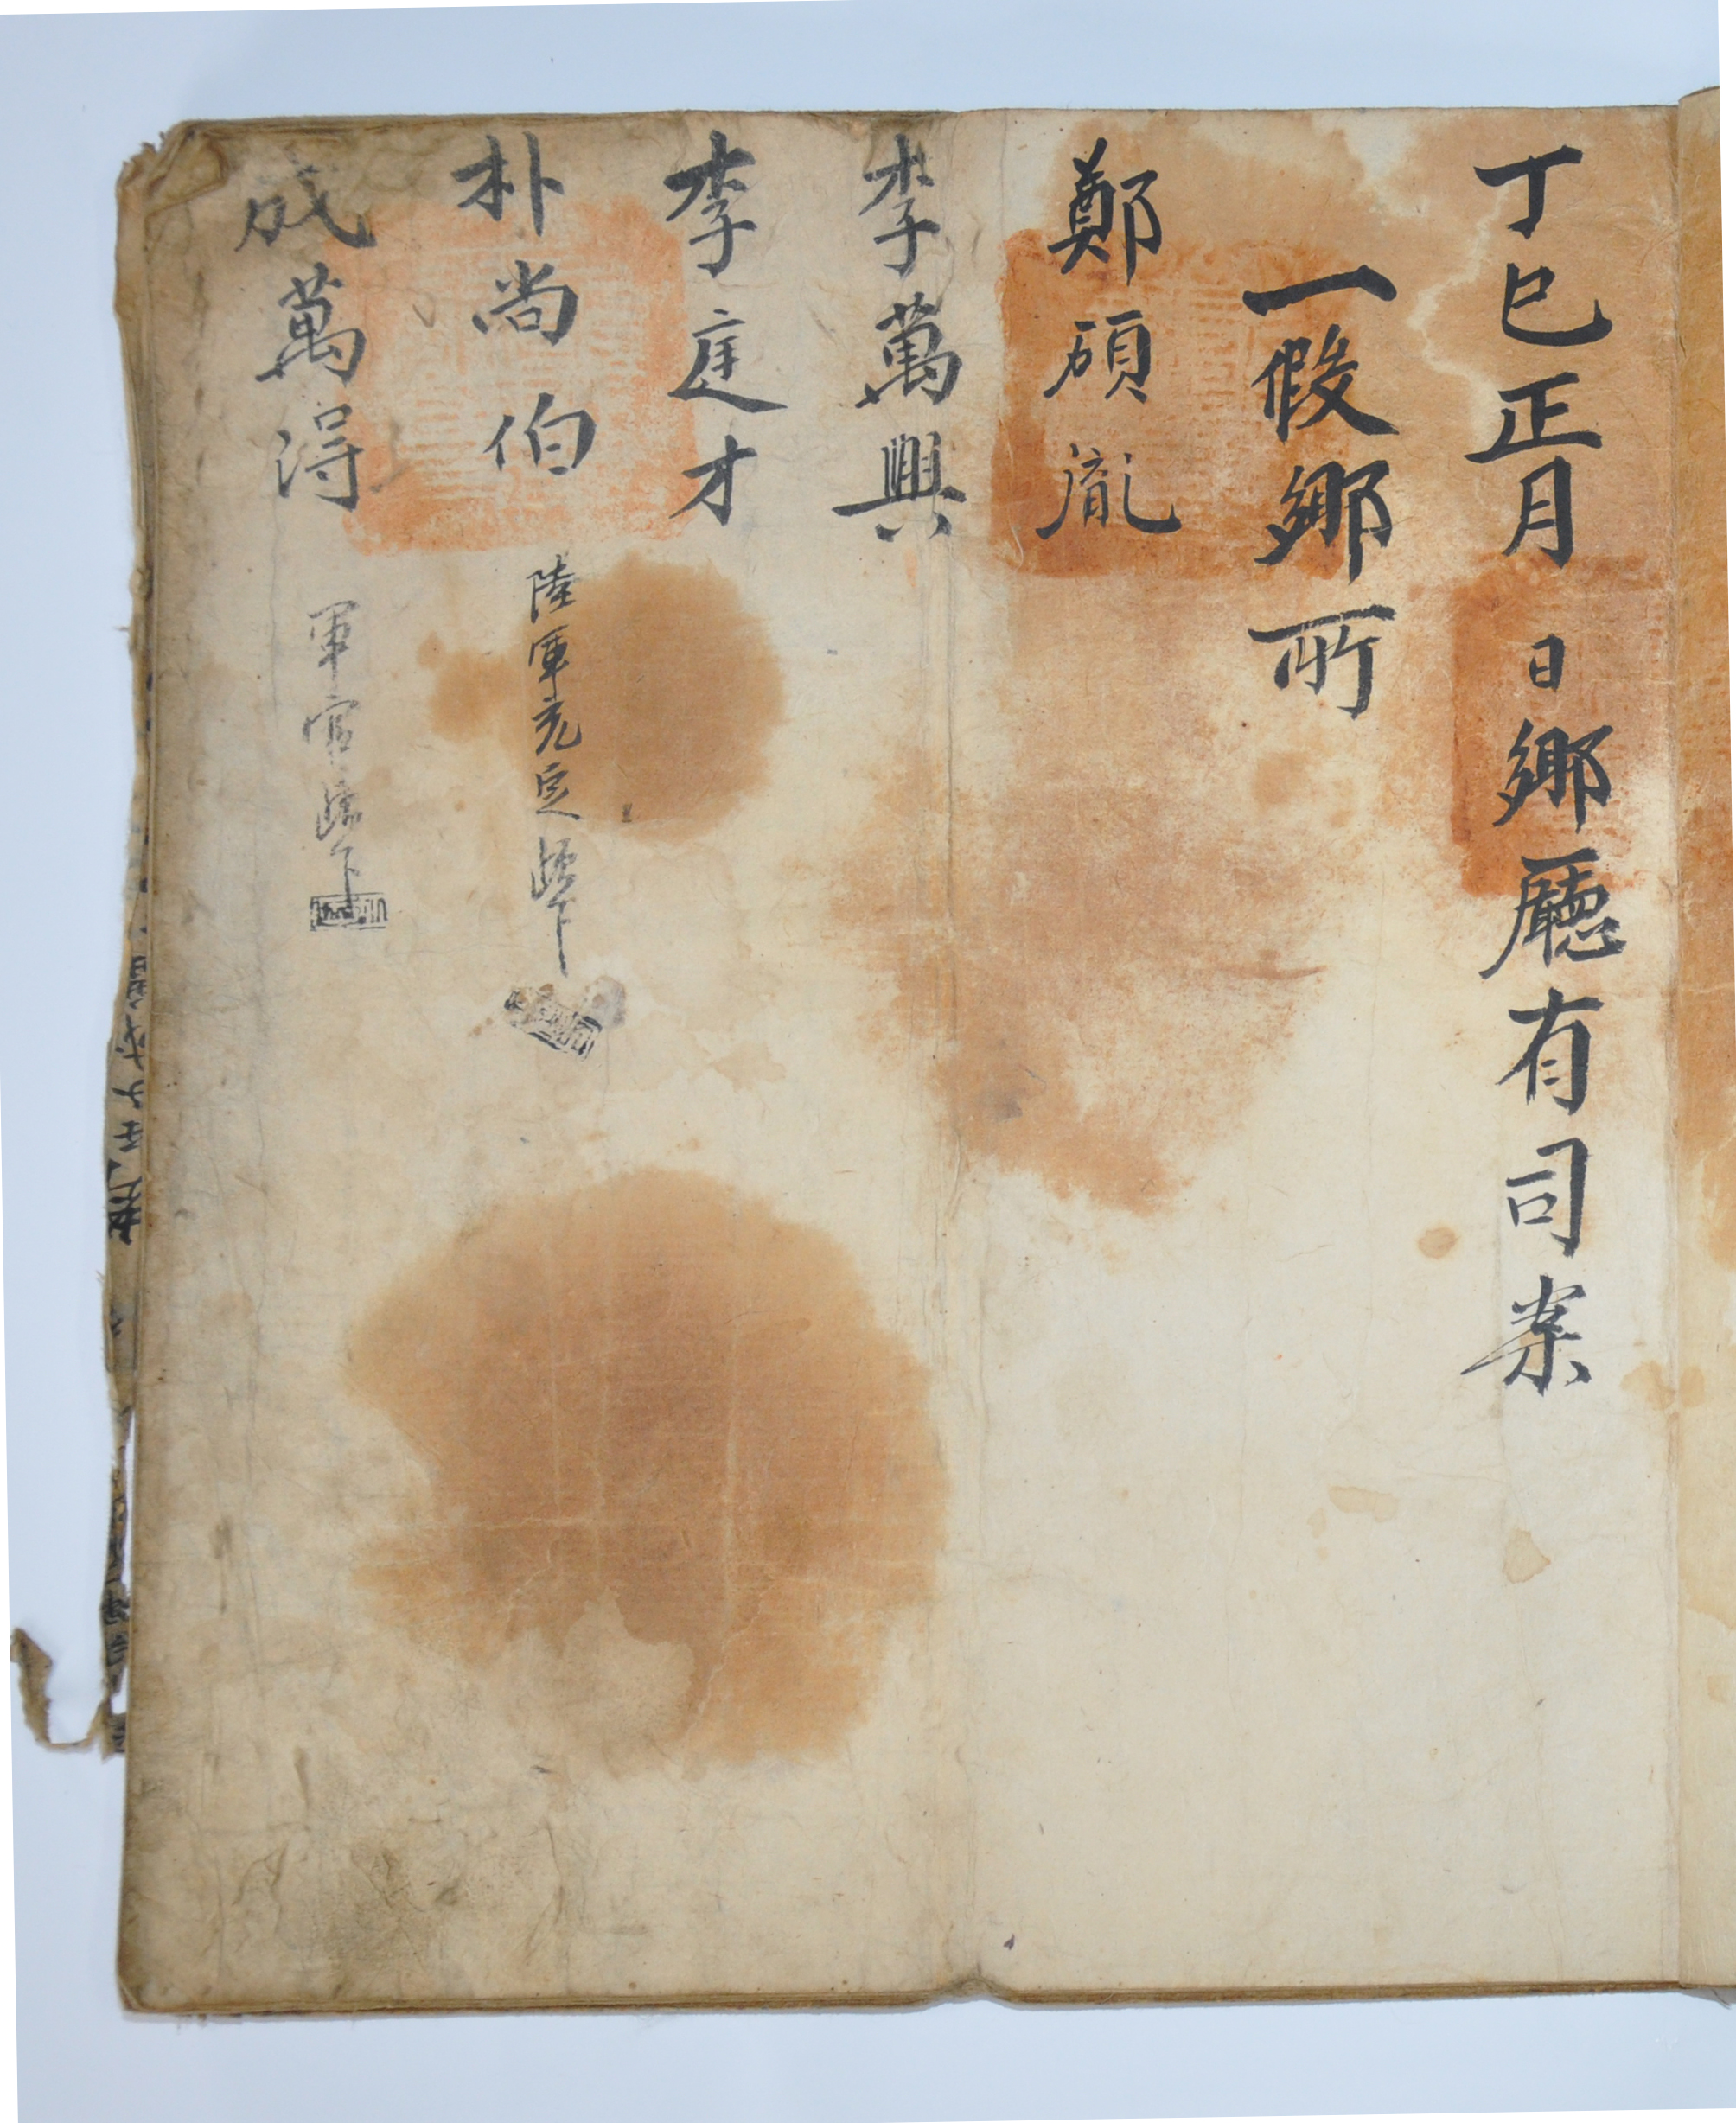 丁巳正月 日鄕廳有司案
一假鄕所
鄭碩胤
李萬興
李庭才
朴尙伯
陸軍充定
成萬得
軍官